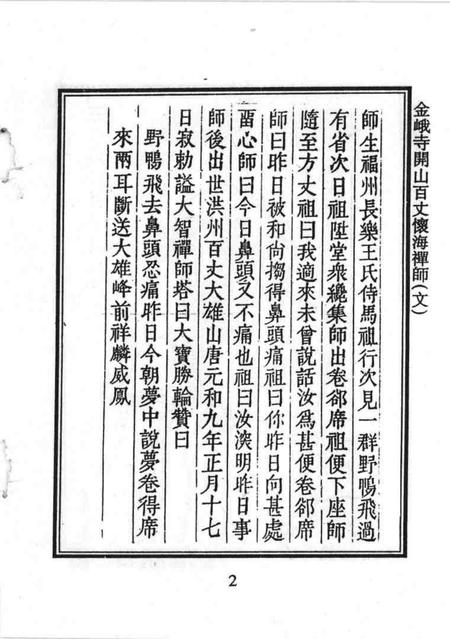 金峨寺開山百丈懷海禪師(文)
師生福州長樂王氏侍馬祖行次見一群野鴨飛過
有省次日祖陞堂衆纔集師出卷郤席祖便下座師
隨至方丈祖曰我適來未曾說話汝爲甚便卷郤席
師曰昨日被和尚搊得鼻頭痛祖曰你昨日向甚處
畱心師曰今日鼻頭又不痛也祖曰汝深明昨日事
師後出世洪州百丈大雄山唐元和九年正月十七
日寂勅謚大智禪師塔曰大寶勝輪贊曰
野鴨飛去鼻頭忍痛昨日今朝夢中說夢卷得席
來兩耳斷送大雄峰前祥麟威鳳
2